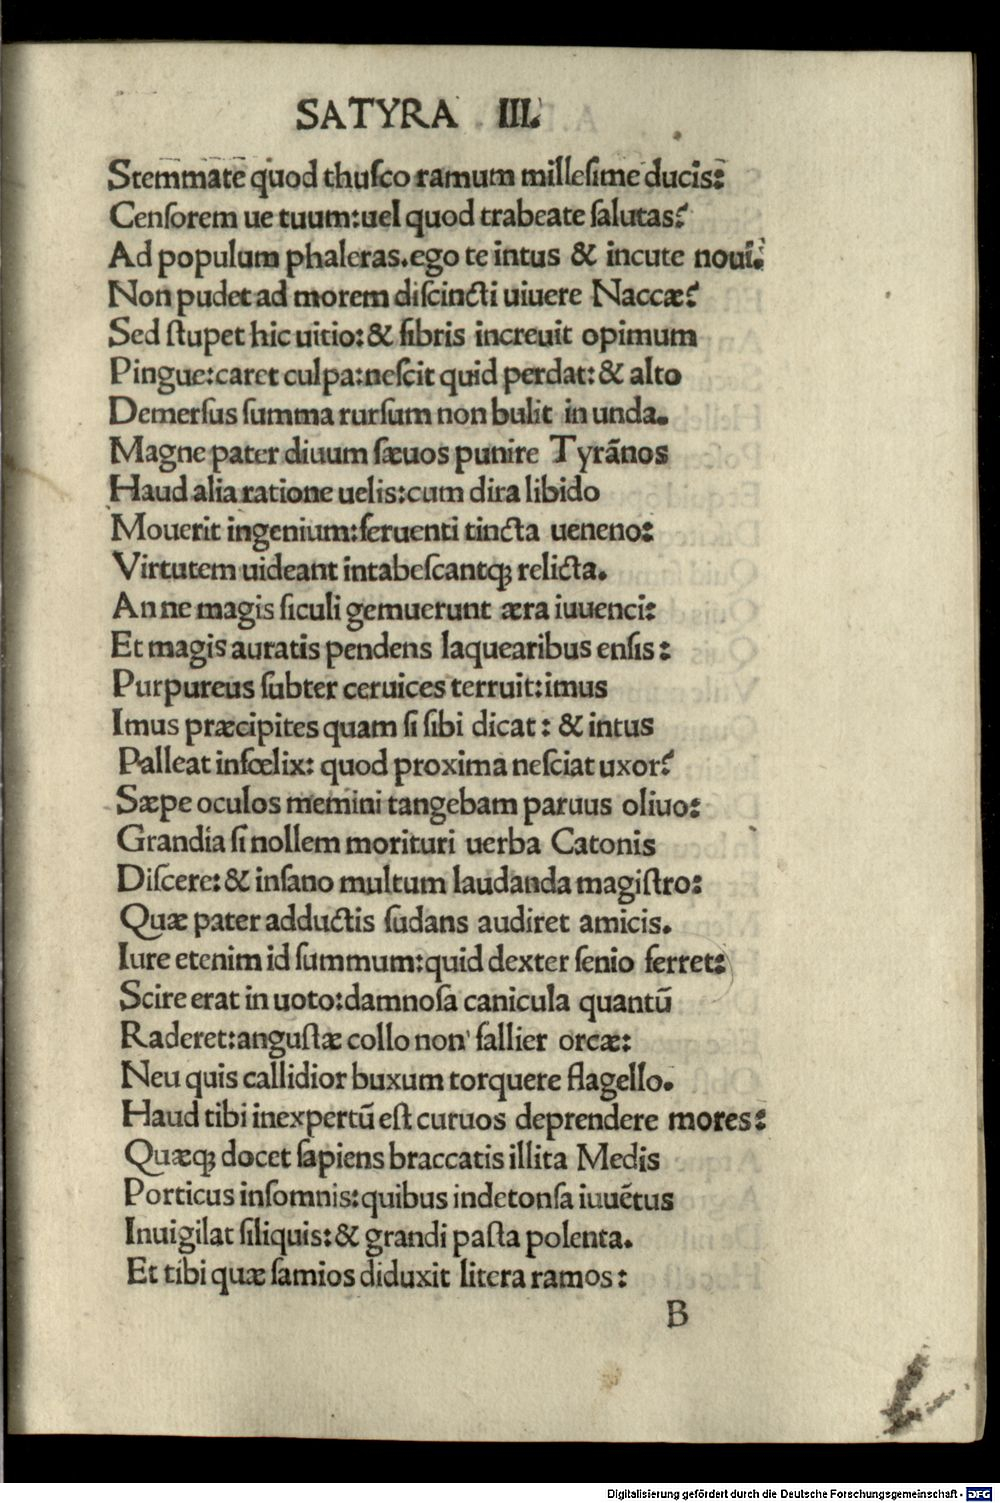 SATYRA III.
Stemmate quod thuſco ramum milleſime ducis:
Cenſorem ue tuum:uel quod trabeate ſalutas?
Ad populum phaleras.ego te intus & incute noui.
Non pudet ad morem diſcincti uiuere Naccæ?
Sed ſtupet hic uitio:& fibris increuit opimum
Pingue:caret culpa:neſcit quid perdat:& alto
Demerſus ſumma rurſum non bulit in unda.
Magne pater diuum ſæuos punire Tyrãnos
Haud alia ratione uelis:cum dira libido
Mouerit ingenium:feruenti tincta ueneno:
Virtutem uideant intabeſcantꝗ relicta.
An ne magis ſiculi gemuerunt æra iuuenci:
Et magis auratis pendens laquearibus enſis:
Purpureus ſubter ceruices terruit:imus
Imus præcipites quam ſi ſibi dicat: & intus
Palleat infœlix: quod proxima neſciat uxor?
Sæpe oculos memini tangebam paruus oliuo:
Grandia ſi nollem morituri uerba Catonis
Diſcere:& inſano multum laudanda magiſtro:
Quæ pater adductis ſudans audiret amicis.
Iure etenim id ſummum:quid dexter ſenio ferret:
Scire erat in uoto:damnoſa canicula quantũ
Raderet:anguſtæ collo non fallier orcæ:
Neu quis callidior buxum torquere flagello.
Haud tibi inexpertũ eſt curuos deprendere mores:
Quæꝗ docet ſapiens braccatis illita Medis
Porticus inſomnis:quibus indetonſa iuuẽtus
Inuigilat ſiliquis:& grandi paſta polenta.
Et tibi quæ ſamios diduxit litera ramos:
B
Digitalisierung gefördert durch die Deutsche Forschungsgemeinschaft - DFG